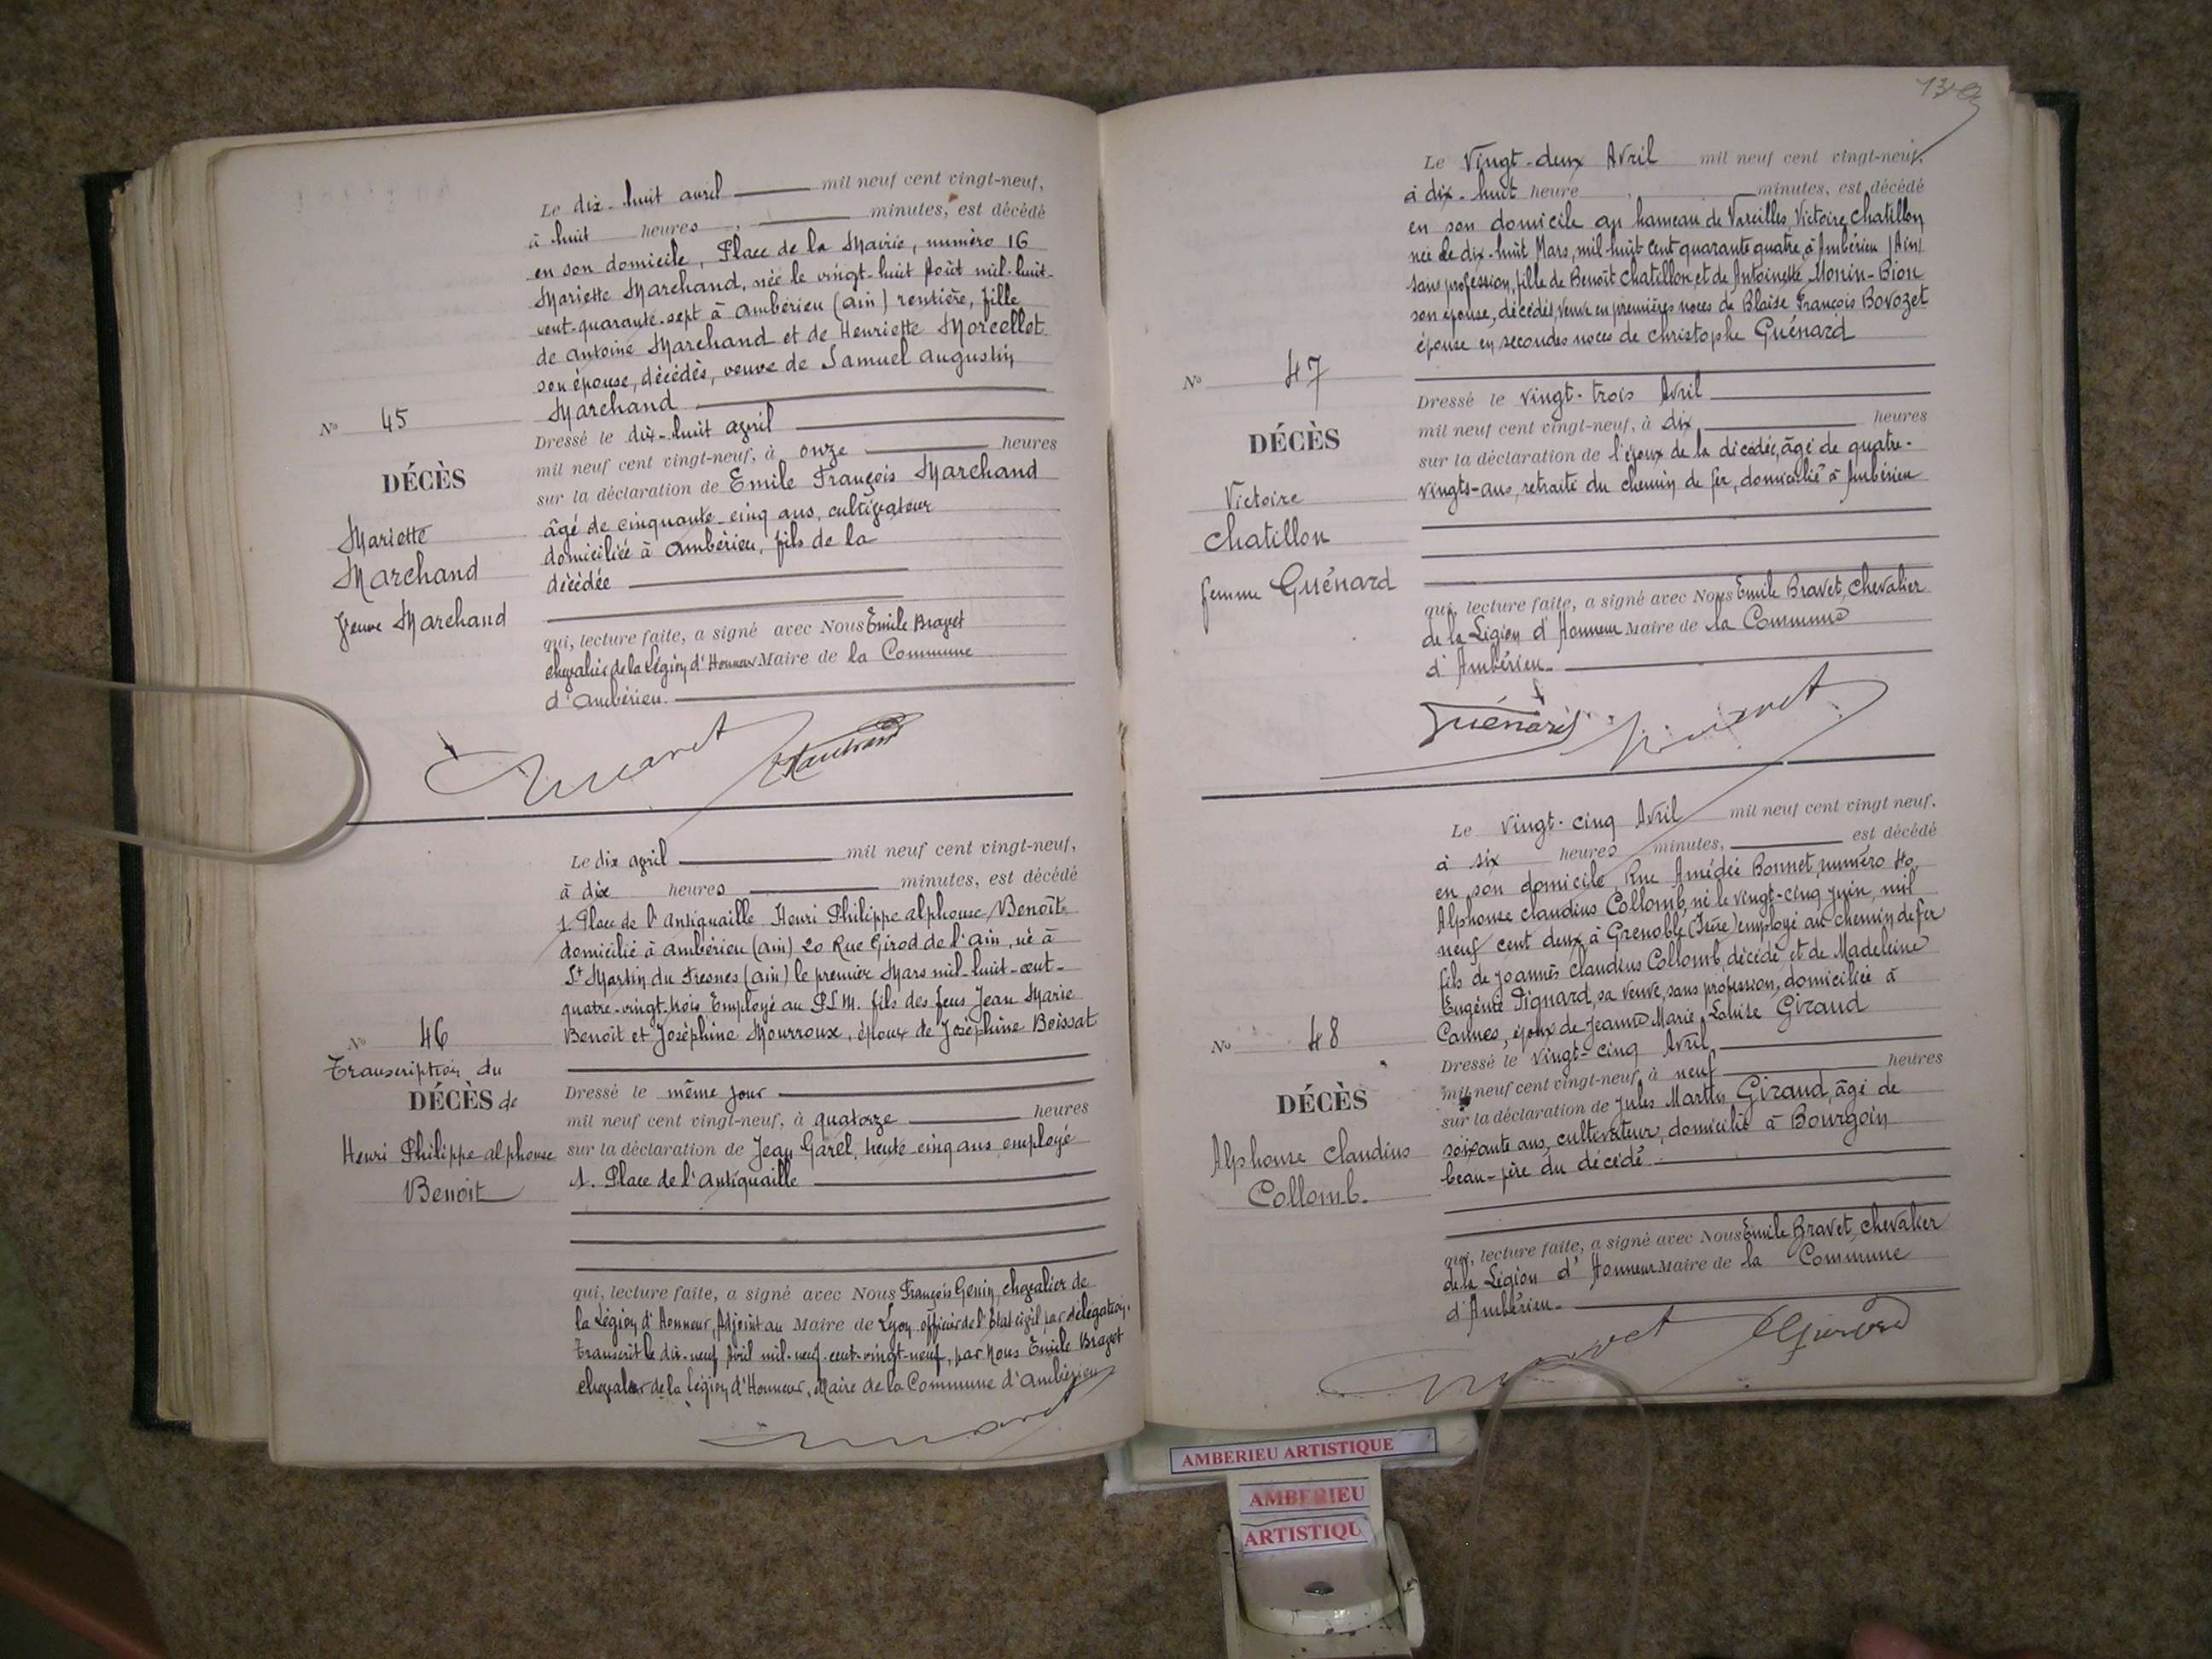 Le dix-huit avril mil neuf cent vingt-neuf,
à huit heures, minutes, est décédé
en son domicile, Place de la Mairie, numéro 16
Mariette Marchand, née le vingt-huit Août mil-huit-
cent-quarante-sept à Ambérieu (Ain) rentière, fille
de Antoine Marchand et de Henriette Morcellet
son épouse, décédés, veuve de Samuel Augustin
Marchand
Nº 45
DÉCÈS
Mariette
Marchand
Veuve Marchand
Dressé le dix-huit avril
mil neuf cent vingt-neuf, à onze heures
sur la déclaration de Emile François Marchand
âgé de cinquante-cinq ans, cultivateur
domicilié à Ambérieu, fils de la
décédée
qui, lecture faite, a signé avec Nous Emile Bravet
chevalier de la Légion d'Honneur Maire de la Commune
d'Ambérieu.
Marchand
Le dix avril mil neuf cent vingt-neuf,
à dix heures minutes, est décédé
1. Place de l'Antiquaille Henri Philippe Alphonse Benoit
domicilié à Ambérieu (Ain) 20 Rue Girod de l'Ain, né à
St Martin du Fresnes (Ain) le premier Mars mil-huit-cent-
quatre-vingt-trois Employé au P.L.M. fils des feus Jean Marie
Benoit et Joséphine Mourroux, époux de Joséphine Boissat
Nº 46
Transcription du
DÉCÈS de
Henri Philippe Alphonse
Benoit
Dressé le même jour
mil neuf cent vingt-neuf, à quatorze heures
sur la déclaration de Jean Garel, trente cinq ans employé
1. Place de l'Antiquaille
qui, lecture faite, a signé avec Nous François Genin, chevalier de
la Légion d'Honneur, Adjoint au Maire de Lyon officier de l'Etat civil par délégation.
Transcrit le dix-neuf Avril mil-neuf-cent-vingt-neuf, par Nous Emile Bravet
chevalier de la Légion d'Honneur, Maire de la Commune d'Ambérieu
Le Vingt-deux Avril mil neuf cent vingt-neuf,
à dix-huit heure, minutes, est décédé
en son domicile au hameau de Vareilles, Victoire Chatillon
née le dix-huit Mars, mil-huit cent quarante quatre, à Ambérieu (Ain)
sans profession, fille de Benoît Chatillon et de Antoinette Monin-Bion
son épouse, décédés, veuve en premières noces de Blaise François Bovozet
épouse en secondes noces de Christophe Guénard
Nº 47
DÉCÈS
Victoire
Chatillon
femme Guénard
Dressé le vingt-trois Avril
mil neuf cent vingt-neuf, à dix heures
sur la déclaration de l'époux de la décédée, âgé de quatre-
vingts-ans, retraité du chemin de fer, domicilié à Ambérieu
qui, lecture faite, a signé avec Nous Emile Bravet, Chevalier
de la Légion d'Honneur Maire de la Commune
d'Ambérieu.
Guénard
Le vingt-cinq Avril mil neuf cent vingt neuf,
à six heures minutes, est décédé
en son domicile, Rue Amédée Bonnet, numéro 40,
Alphonse Claudius Collomb, né le vingt-cinq juin, mil
neuf cent deux à Grenoble (Isère) employé au chemin de fer
fils de Joannès Claudius Collomb, décédé et de Madeleine
Eugénie Pignard, sa veuve, sans profession, domiciliée à
Cannes, époux de Jeanne Marie Louise Giraud
Nº 48
DÉCÈS
Alphonse Claudius
Collomb.
Dressé le Vingt-cinq Avril
mil neuf cent vingt-neuf, à neuf heures
sur la déclaration de Jules Martin Giraud, âgé de
soixante ans, cultivateur, domicilié à Bourgoin
beau-père du décédé
qui, lecture faite, a signé avec Nous Emile Bravet, chevalier
de la Légion d'Honneur Maire de la Commune
d'Ambérieu.
AMBERIEU ARTISTIQUE
AMBERIEU
ARTISTIQU